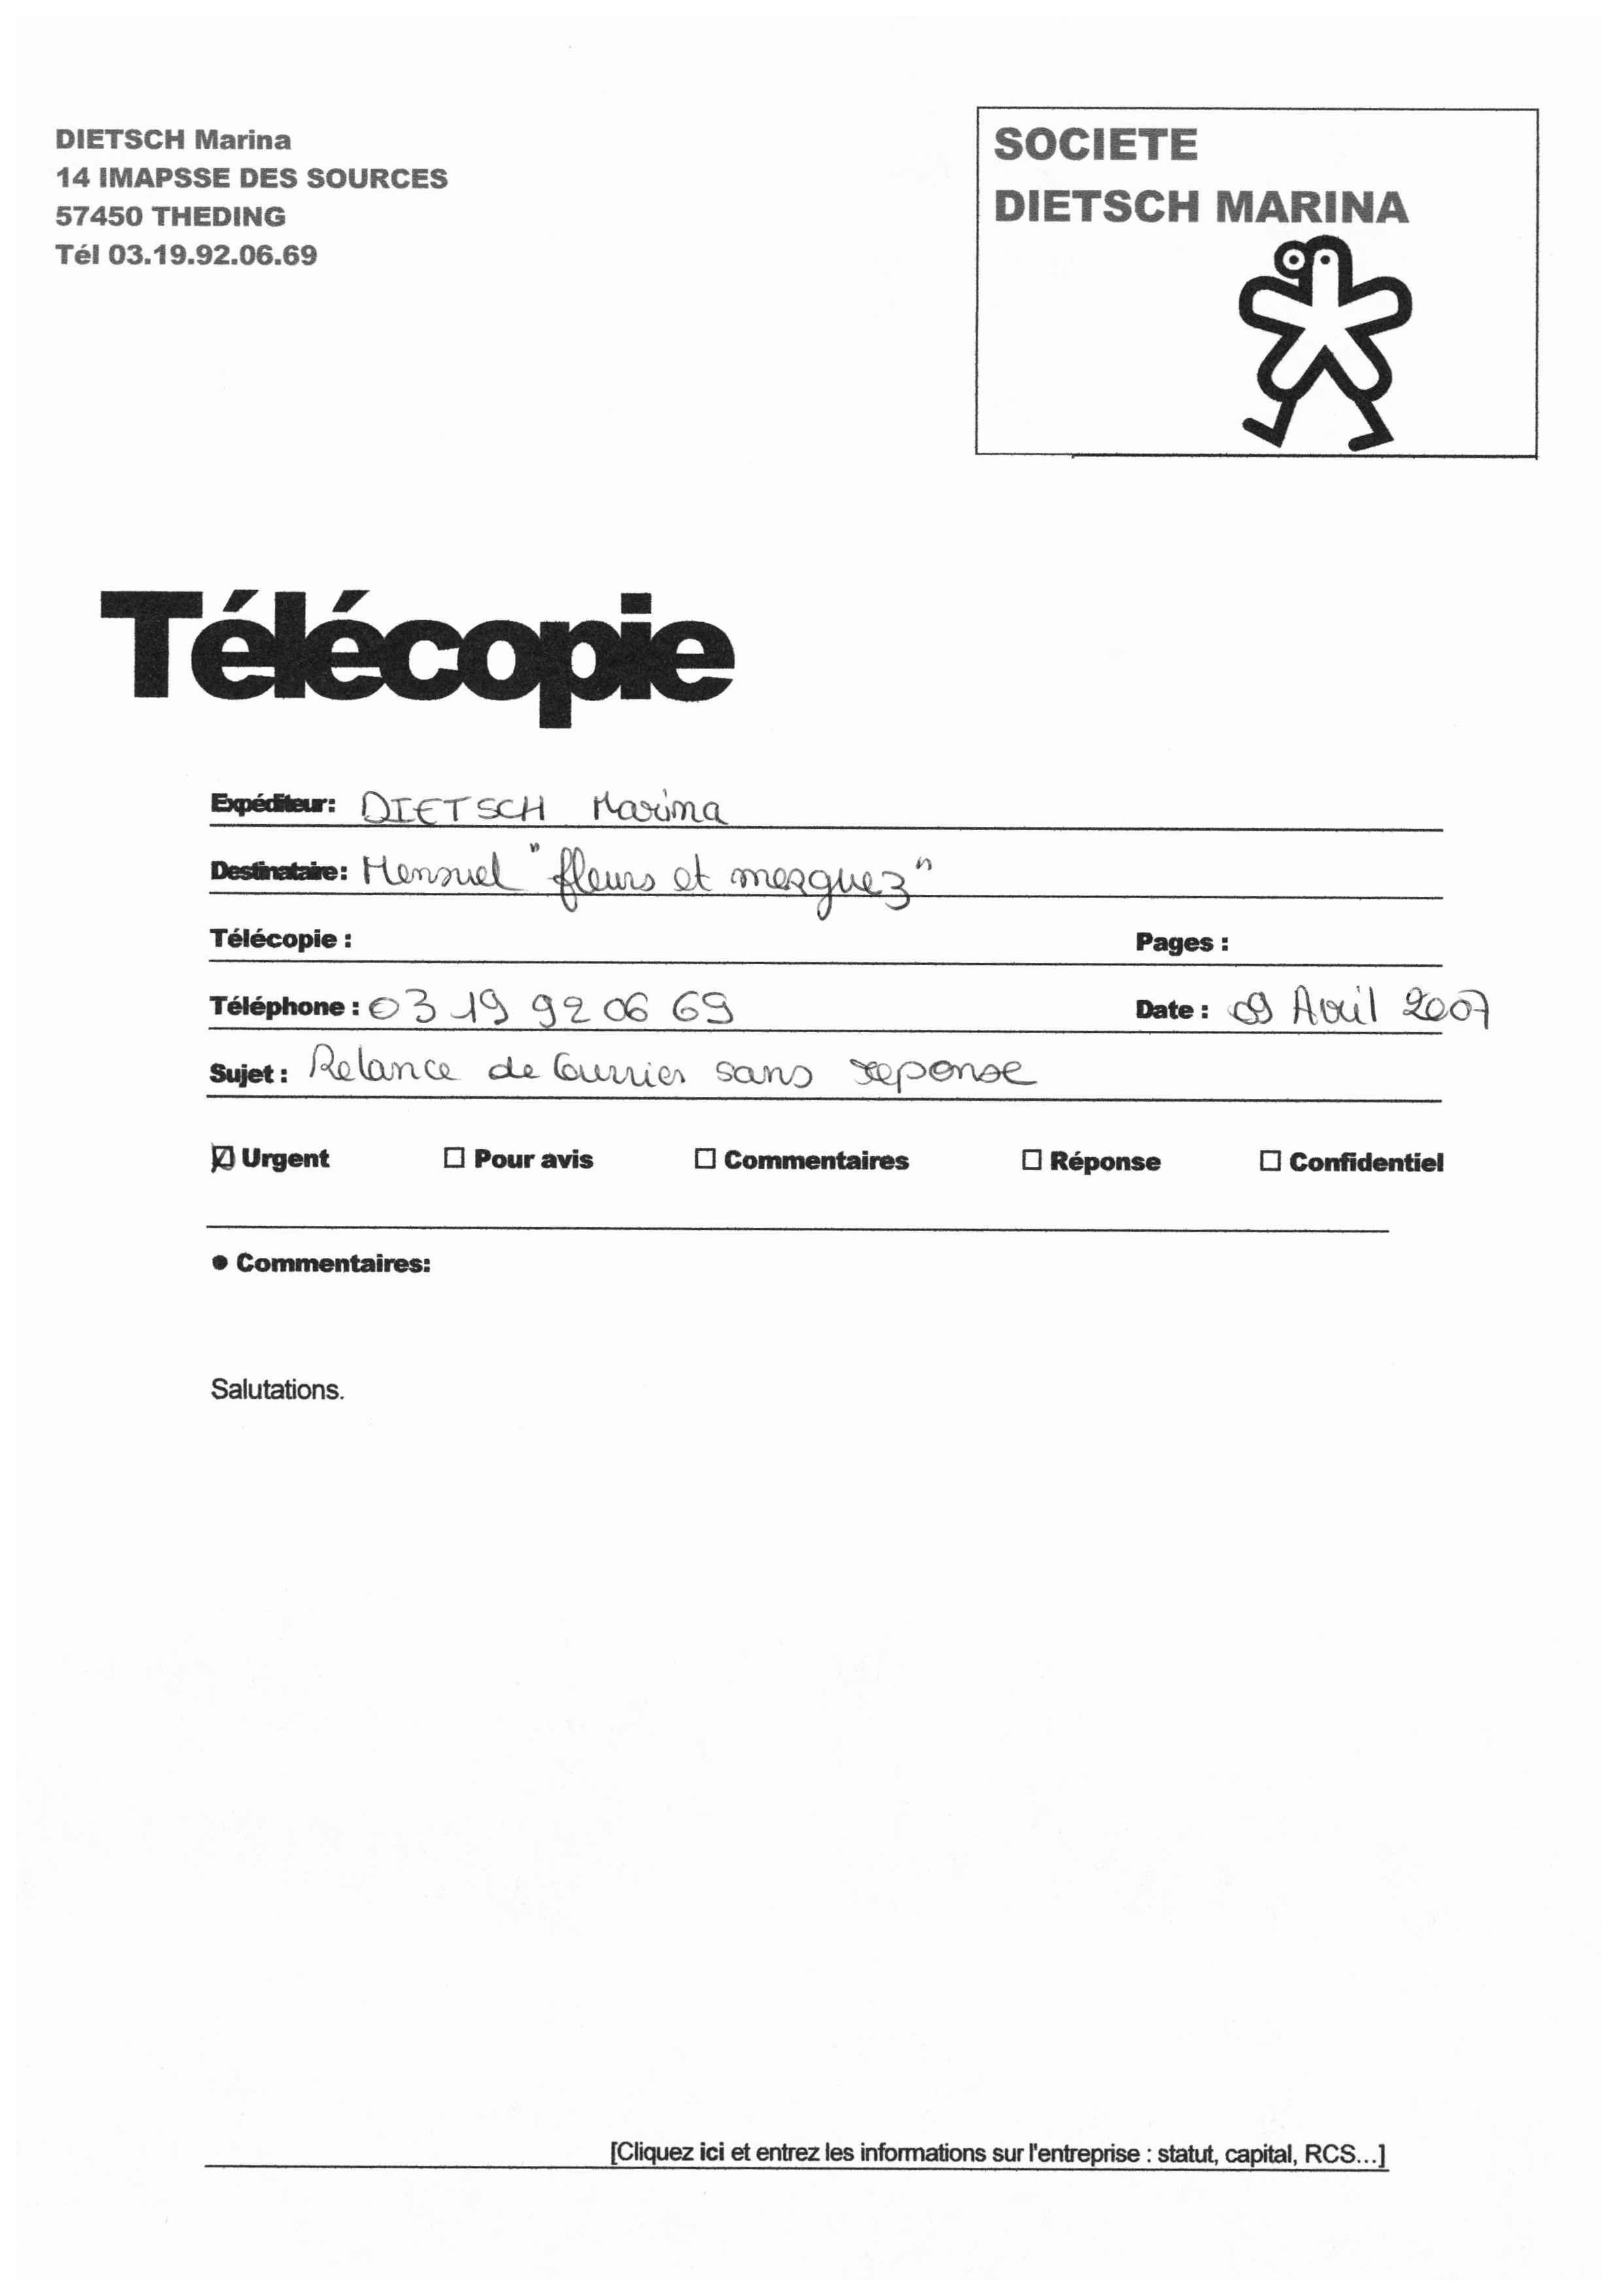 DIETSCH Marina
14 IMAPSSE DES SOURCES
57450 THEDING
Tél 03.19.92.06.69
SOCIETE
DIETSCH MARINA
Télécopie
Expéditeur: DIETSCH Marina
Destinataire: Mensuel "fleurs et merguez"
Télécopie : Pages :
Téléphone : 03 19 92 06 69 Date : 09 Avril 2007
Sujet : Relance de Courrier sans reponse
☑ Urgent ☐ Pour avis ☐ Commentaires ☐ Réponse ☐ Confidentiel
● Commentaires:
Salutations.
[Cliquez ici et entrez les informations sur l'entreprise : statut, capital, RCS...]